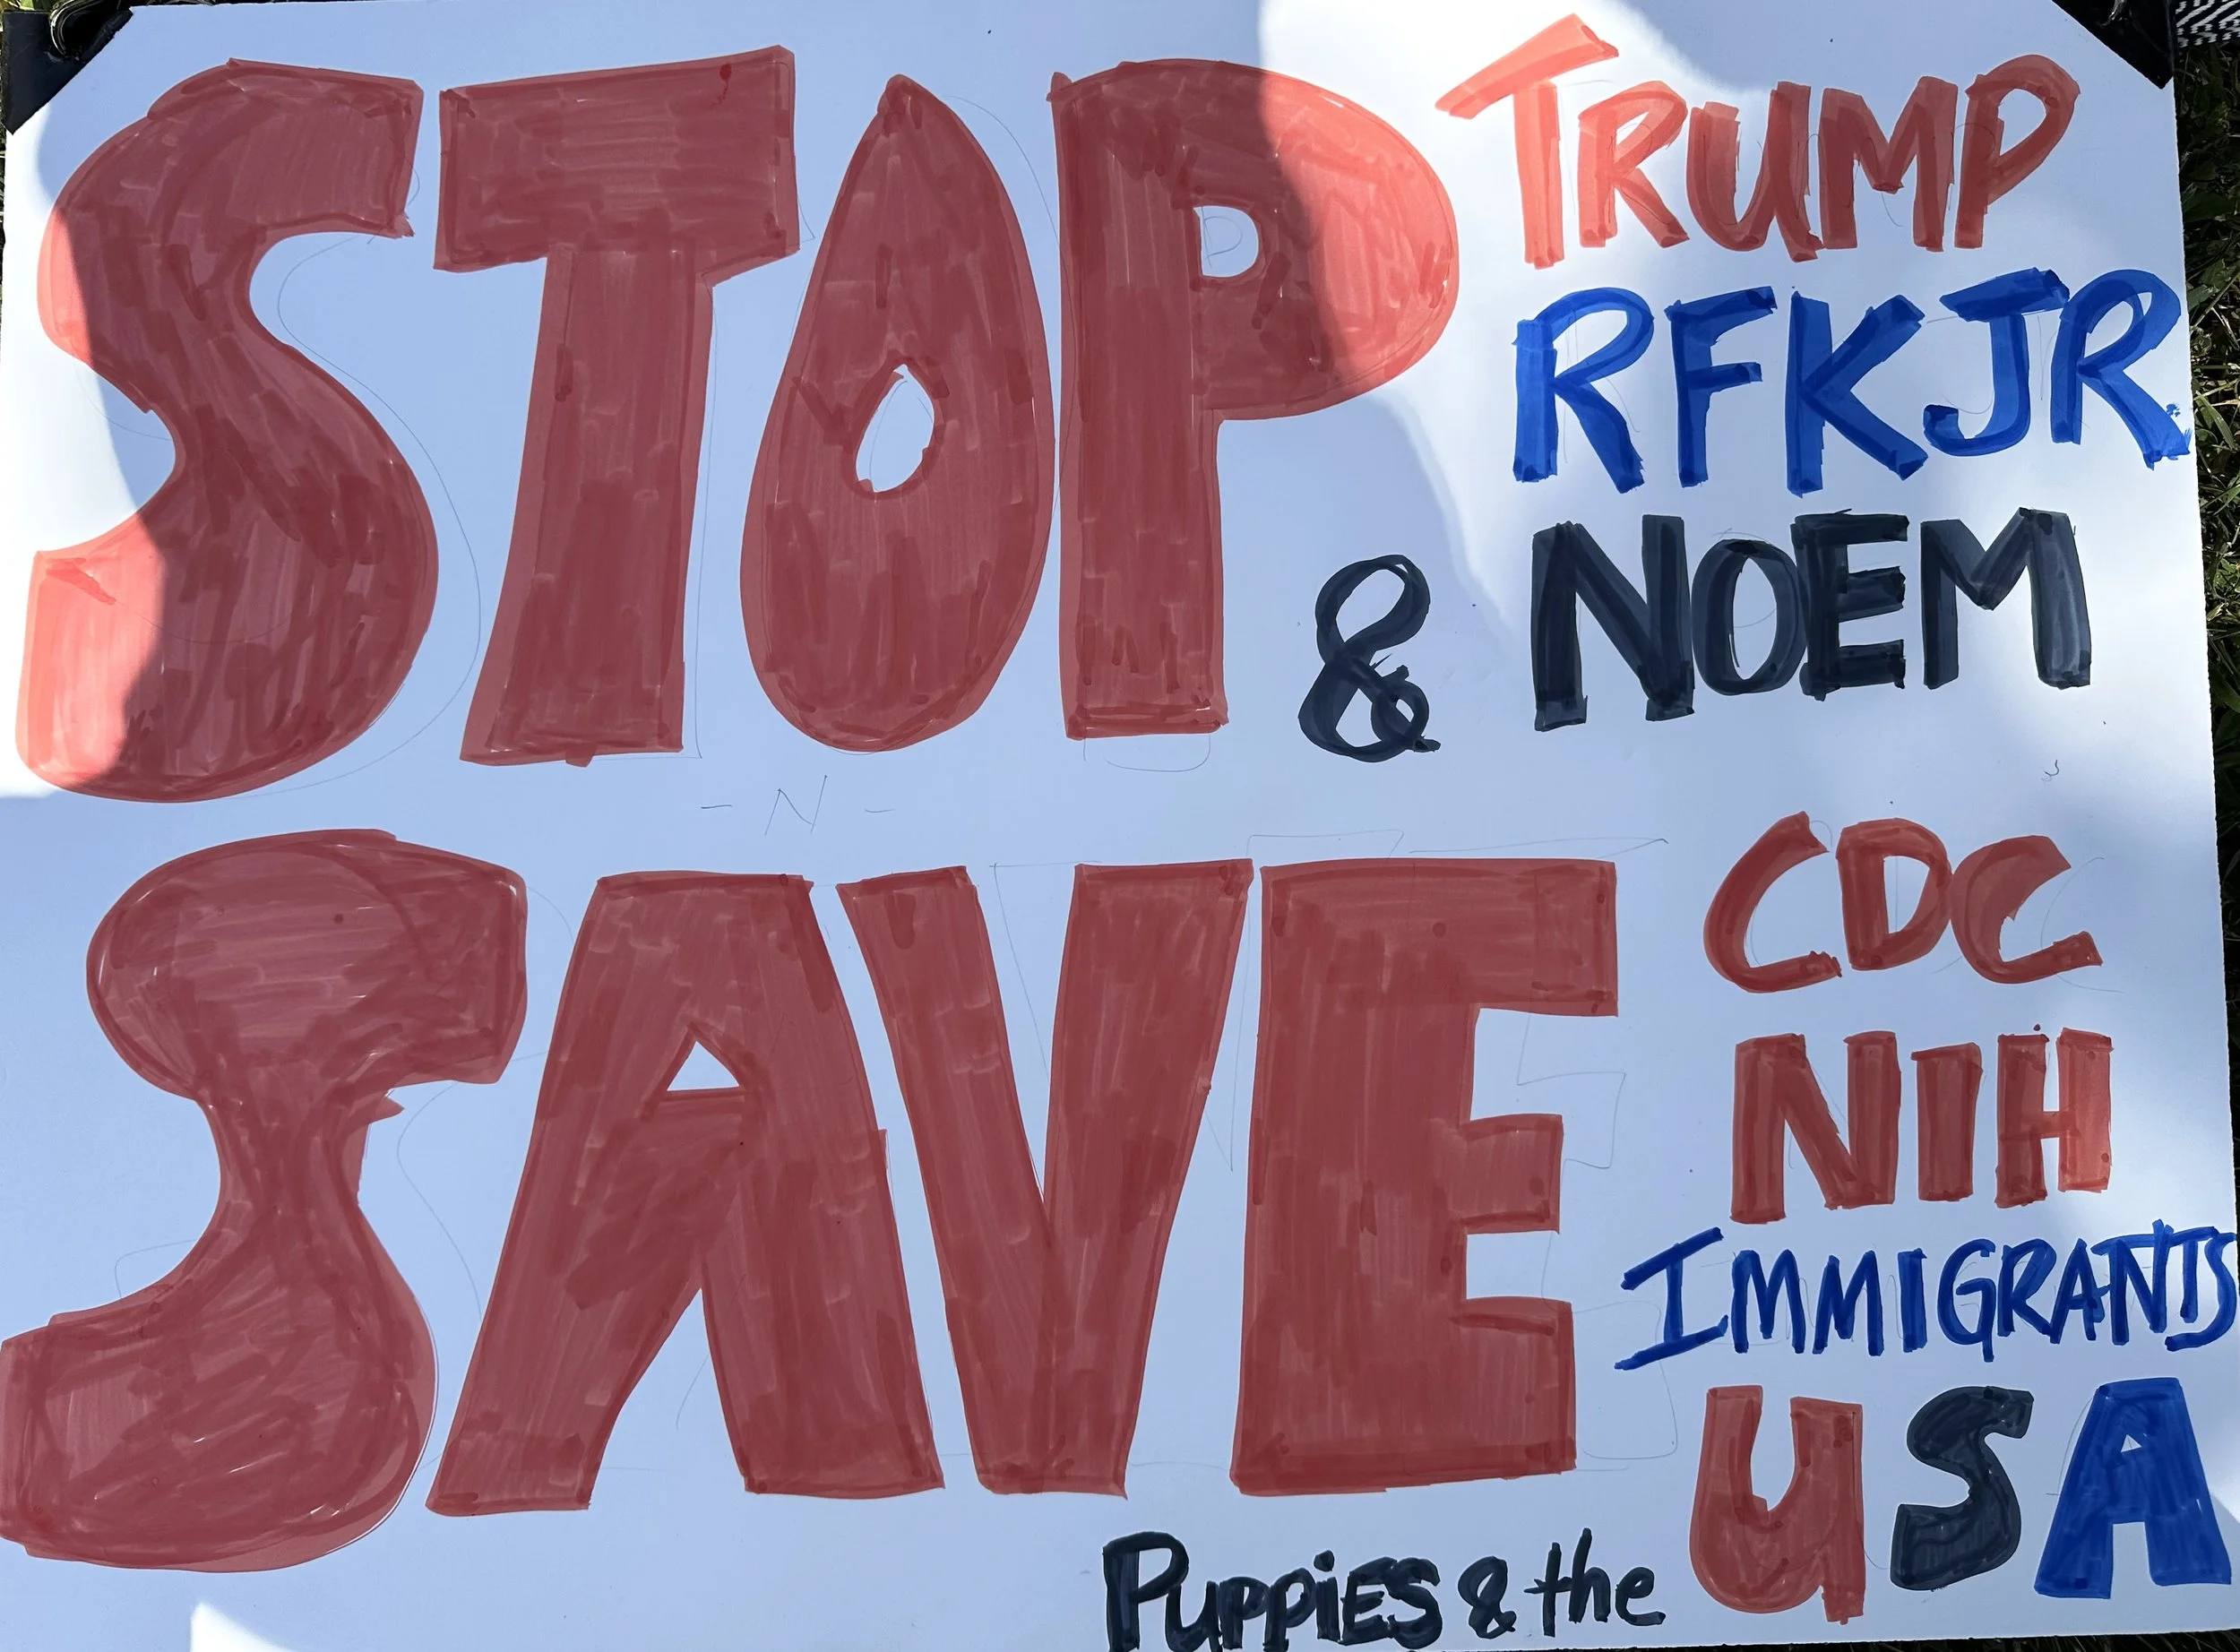 STOP
TRUMP
RFKJR
& NOEM
- N -
SAVE
CDC
NIH
IMMIGRANTS
PUPPiES & the USA